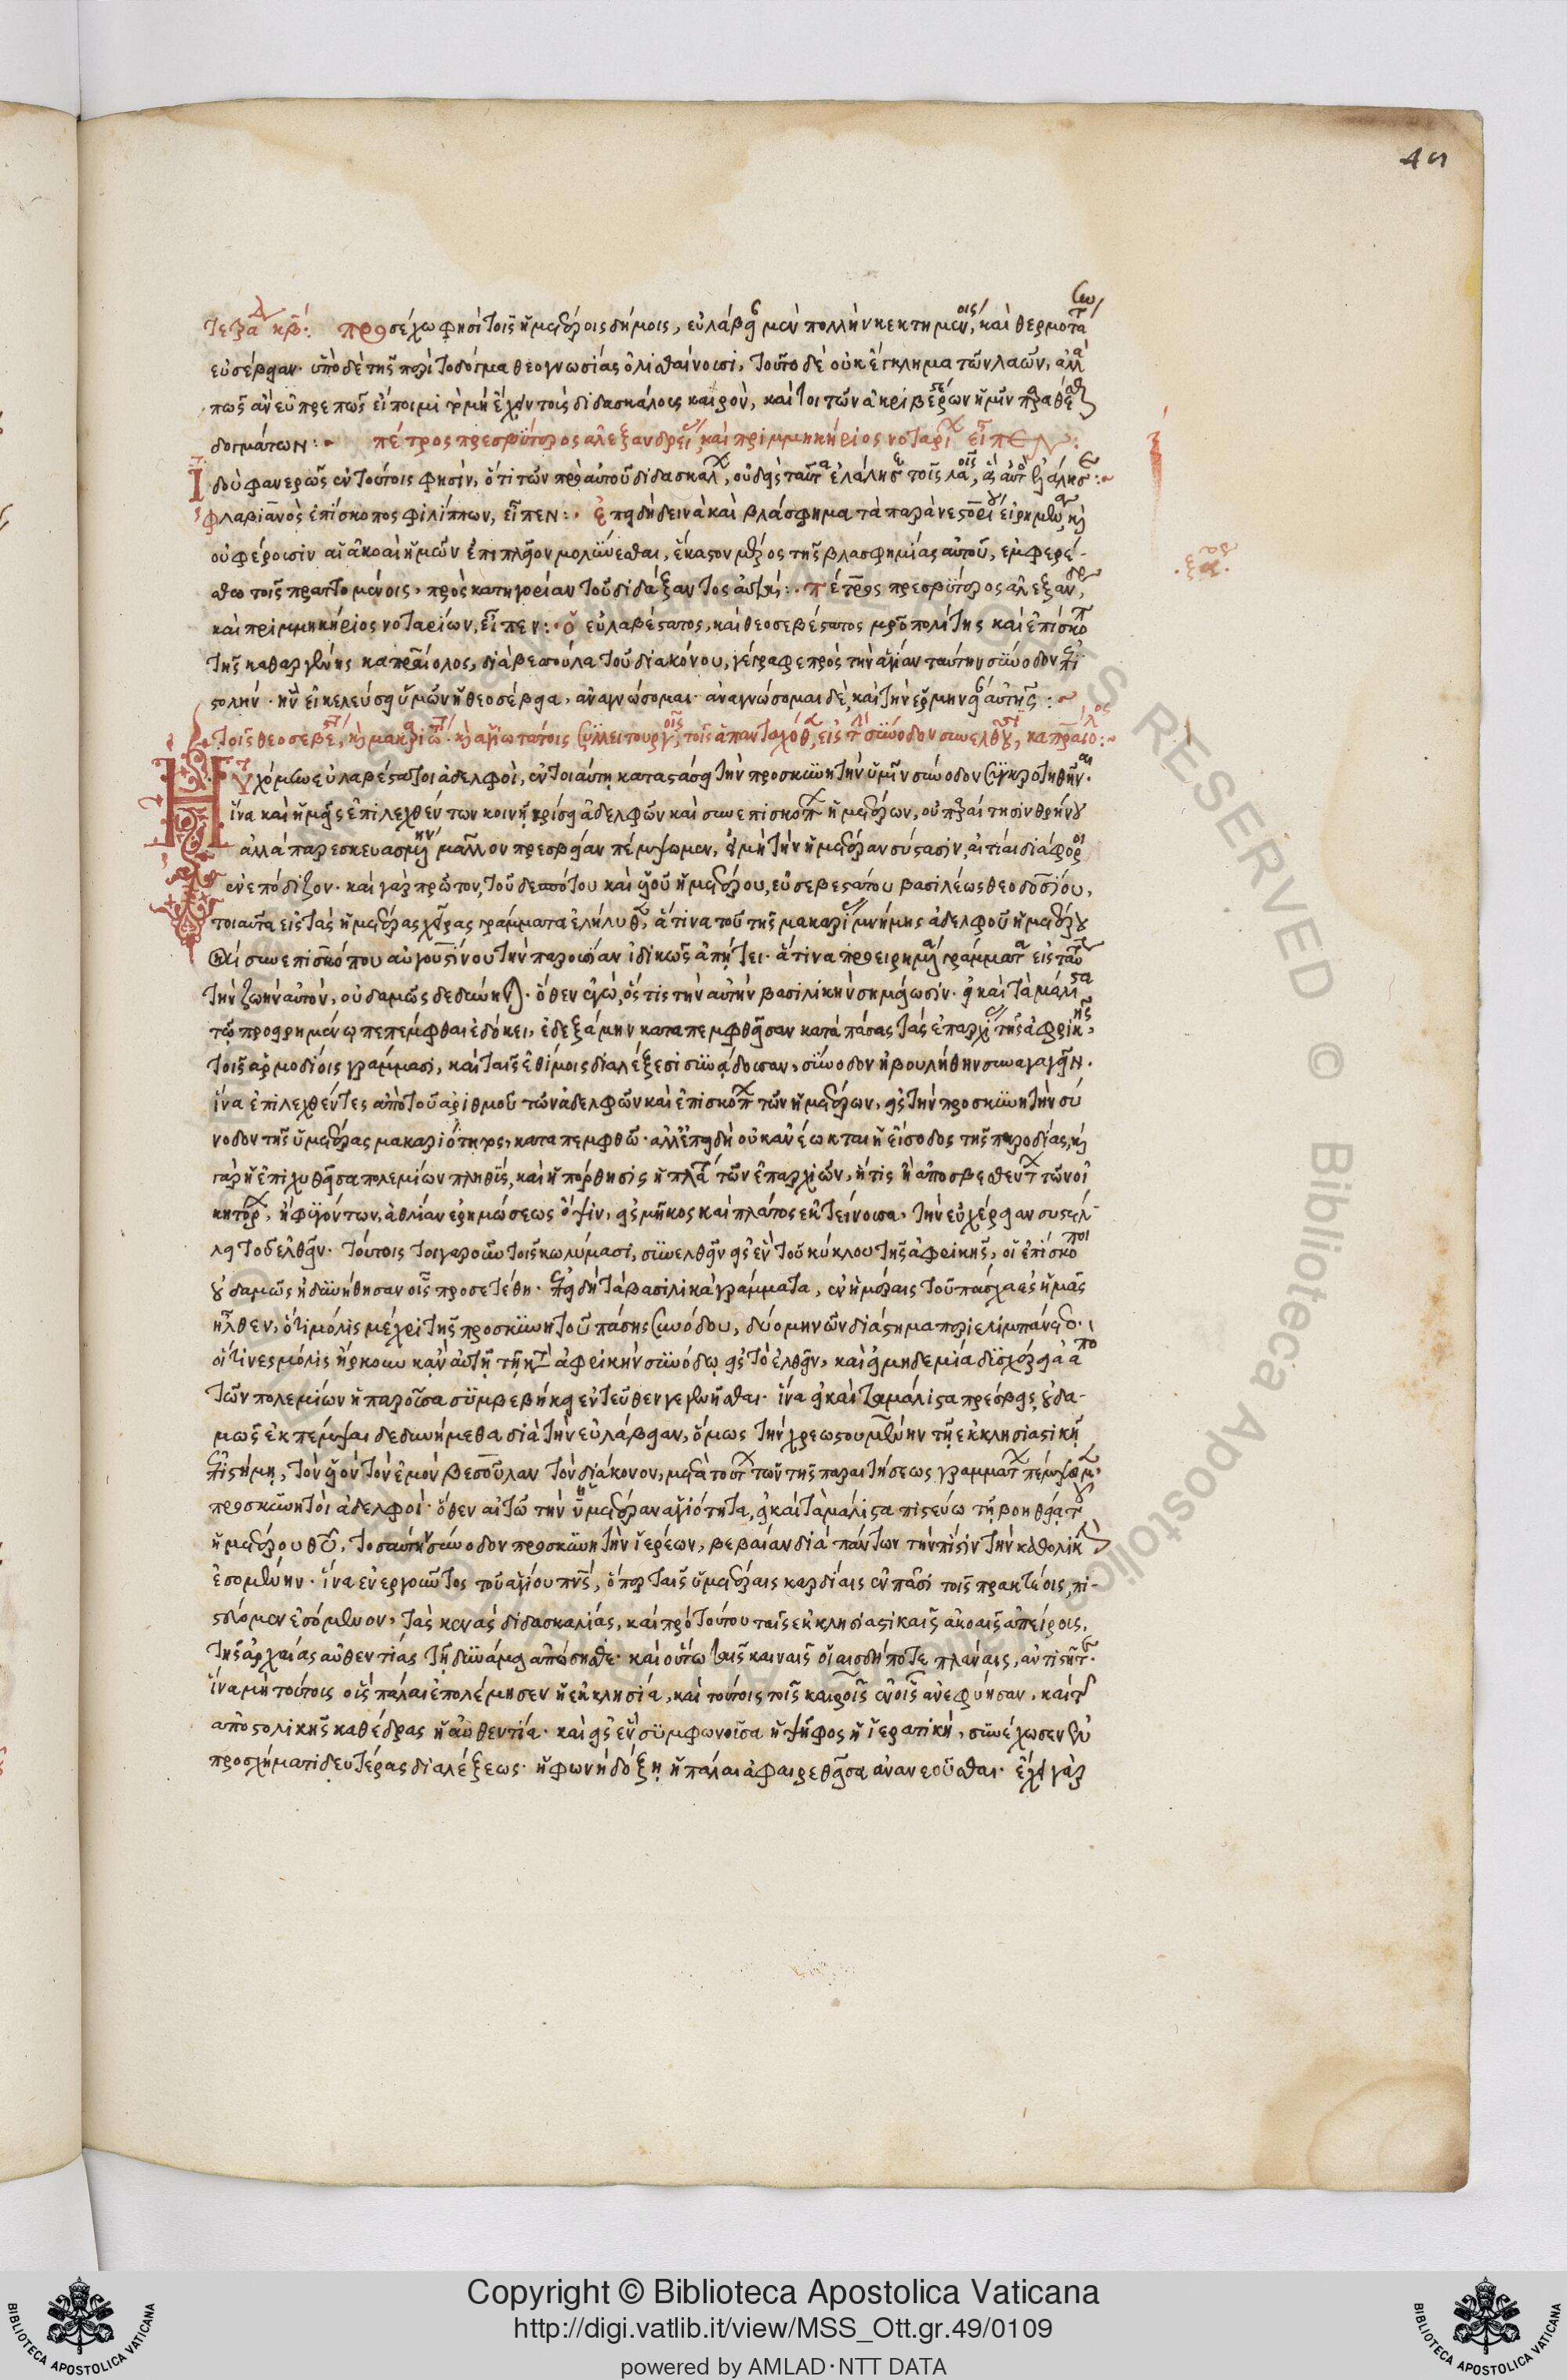 49
προσέχω φησὶ τοῖς ἡμετέροις δήμοις, εὐλάβειαν μὲν πολλὴν κεκτημένοις, καὶ θερμοτάτην
εὐσέβειαν. ὑπὸ δὲ τῆς περὶ τὸ δόγμα θεογνωσίας ὀλισθαίνουσι, τοῦτο δὲ οὐκ ἔγκλημα τῶν λαῶν, ἀλλὰ
πῶς ἂν εὐπρεπῶς εἴποιμι τὸ μὴ ἔχειν τοὺς διδασκάλους καιρὸν, καί τι τῶν ἀκριβεστέρων ὑμῖν παραθέσθαι
δογμάτων: πέτρος πρεσβύτερος ἀλεξανδρείας καὶ πριμμηκήριος νοταρίων εἶπεν:
Ἰδοὺ φανερῶς ἐν τούτοις φησὶν, ὅτι τῶν πρὸ αὐτοῦ διδασκάλων, οὐδεὶς ταῦτα ἐλάλησε τοῖς λαοῖς, ἃ αὐτὸς ἐλάλησε:
φλαβιανὸς ἐπίσκοπος φιλίππων, εἶπεν: ἐπειδὴ δεινὰ καὶ βλάσφημα τὰ παρὰ νεστορίου εἰρημένα, καὶ
οὐ φέρουσιν αἱ ἀκοαὶ ἡμῶν ἐπιπλεῖον μολύνεσθαι, ἕκαστον μέρος τῆς βλασφημίας αὐτοῦ, ἐμφερέ-
σθω τοῖς πραττομένοις, πρὸς κατηγορίαν τοῦ διδάξαντος αὐτά: πέτρος πρεσβύτερος ἀλεξανδρείας,
καὶ πριμμηκήριος νοταρίων, εἶπεν: ὁ εὐλαβέστατος, καὶ θεοσεβέστατος μητροπολίτης καὶ ἐπίσκοπος
τῆς καρθαγένης καπραίολος, διὰ βεσούλα τοῦ διακόνου, γέγραφε πρὸς τὴν ἁγίαν ταύτην σύνοδον ἐπι
στολήν. ἣν εἰ κελεύσει ὑμῶν ἡ θεοσέβεια, ἀναγνώσομαι. ἀναγνώσομαι δὲ, καὶ τὴν ἑρμηνείαν αὐτῆς:
Τοῖς θεοσεβεστάτοις, καὶ μακαριωτάτοις. καὶ ἁγιωτάτοις συλλειτουργοῖς, τοῖς ἁπανταχόθεν εἰς τὴν σύνοδον συνελθοῦσι, καπραίολος:
Ηὐχόμην εὐλαβέστατοι ἀδελφοὶ, ἐν τοιαύτῃ καταστάσει τὴν προσκυνητὴν ὑμῖν σύνοδον συγκροτηθῆναι.
ἵνα καὶ ἡμεῖς ἐπιλεχθέντων κοινῇ κρίσει ἀδελφῶν καὶ συνεπισκόπων ἡμετέρων, οὐ παραίτησιν θρήνου
ἀλλὰ παρεσκευασμένην μᾶλλον πρεσβείαν πέμψωμεν, εἰ μὴ τὴν ἡμετέραν σύστασιν, αἰτίαι διάφοροι
ἐνεπόδιζον. καὶ γὰρ πρῶτον, τοῦ δεσπότου καὶ υἱοῦ ἡμετέρου, εὐσεβεστάτου βασιλέως θεοδοσίου,
τοιαῦτα εἰς τὰς ἡμετέρας χεῖρας γράμματα ἐλήλυθεν, ἅτινα τοῦ τῆς μακαρίας μνήμης ἀδελφοῦ ἡμετέρου
καὶ συνεπισκόπου αὐγουστίνου τὴν παρουσίαν ἰδικῶς ἀπῄτει. ἅτινα προειρημένα γράμματα εἰς ταύτην
τὴν ζωὴν αὐτὸν, οὐδαμῶς δεδύνηνται. ὅθεν ἐγὼ, ὅστις τὴν αὐτὴν βασιλικὴν σημείωσιν. εἰ καὶ τὰ μάλιστα
τῷ προειρημένῳ πεπέμφθαι ἐδόκει, ἐδεξάμην καταπεμφθεῖσαν κατὰ πάσας τὰς ἐπαρχίας τῆς ἀφρικῆς,
τοῖς ἁρμοδίοις γράμμασι, καὶ ταῖς ἐθίμοις διαλέξεσι συνᾴδουσαν, σύνοδον ἠβουλήθην συναγαγεῖν.
ἵνα ἐπιλεχθέντες ἀπὸ τοῦ ἀριθμοῦ τῶν ἀδελφῶν καὶ ἐπισκόπων τῶν ἡμετέρων, εἰς τὴν προσκυνητὴν σύ
νοδον τῆς ὑμετέρας μακαριότητος, καταπεμφθῶσι. ἀλλ' ἐπειδὴ οὐκ ἀνέῳκται ἡ εἴσοδος τῆς παρόδίας, καὶ
γὰρ ἡ ἐπιχυθεῖσα πολεμίων πληθὺς, καὶ ἡ πόρθησις ἡ πλατεῖα τῶν ἐπαρχιῶν, ἥτις ἢ ἀποσβεσθέντων τῶν οἰ
κητόρων, ἢ φυγόντων, ἀθλίαν ἐρημώσεως ὄψιν, εἰς μῆκος καὶ πλάτος ἐκτείνουσα, τὴν εὐχέρειαν συστέλ-
λει τοῦ ἐλθεῖν. τούτοις τοιγαροῦν τοῖς κωλύμασι, συνελθεῖν εἰς ἓν τοῦ κύκλου τῆς ἀφρικῆς, οἱ ἐπίσκοποι
οὐδαμῶς ἠδυνήθησαν οἷς προσετέθη. ἐπειδὴ τὰ βασιλικὰ γράμματα, ἐν ἡμέραις τοῦ πάσχα εἰς ἡμᾶς
ἦλθεν, ὅτι μόλις μέχρι τῆς προσκυνητοῦ πάσης συνόδου, δύο μηνῶν διάστημα περιελιμπάνετο.
οἵτινες μόλις ἤρκουν κἂν αὐτῇ τῇ κατὰ ἀφρικὴν συνόδῳ εἰς τὸ ἐλθεῖν, καὶ εἰ μηδεμία δυσχέρεια ἀπὸ
τῶν πολεμίων ἡ παροῦσα συμβεβήκει ἐντεῦθεν γεγενῆσθαι. ἵνα εἰ καὶ τὰ μάλιστα πρέσβεις, οὐδα-
μῶς ἐκπέμψαι δεδυνήμεθα διὰ τὴν εὐλάβειαν, ὅμως τὴν χρεωστουμένην τῇ ἐκκλησιαστικῇ
ἐπιστήμῃ, τὸν υἱὸν τὸν ἐμὸν βεσοῦλαν τὸν διάκονον, μετὰ τούτων τῶν τῆς παραιτήσεως γραμμάτων πέμψωμεν.
προσκυνητοὶ ἀδελφοὶ. ὅθεν αἰτῶ τὴν ὑμετέραν ἁγιότητα, εἰ καὶ τὰ μάλιστα πιστεύω τῇ βοηθείᾳ τοῦ
ἡμετέρου θεοῦ, τοσαύτη σύνοδον προσκυνητὴν ἱερέων, βεβαίαν διὰ πάντων τὴν πίστιν τὴν καθολικὴν
ἐσομένην. ἵνα ἐνεργοῦντος τοῦ ἁγίου πνεύματος, ὅπερ ταῖς ὑμετέραις καρδίαις ἐν πᾶσι τοῖς πρακτέοις, πι-
στεύομεν ἐσόμενον, τὰς κενὰς διδασκαλίας, καὶ πρὸ τούτου ταῖς ἐκκλησιαστικαῖς ἀκοαῖς ἀπείροις,
τῆς ἀρχαίας αὐθεντίας τῇ δυνάμει ἀπώσησθε. καὶ οὕτω ταῖς καιναῖς οἱαισδήποτε πλάναις, ἀντιστῆτε.
ἵνα μὴ τούτοις οἷς πάλαι ἐπολέμησεν ἡ ἐκκλησία, καὶ τούτοις τοῖς καιροῖς ἐν οἷς ἀνεφύησαν, καὶ τῆς
ἀποστολικῆς καθέδρας ἡ αὐθεντία. καὶ εἰς ἓν συμφωνοῦσα ἡ ψῆφος ἡ ἱερατικὴ, συνέχωσεν ἐν
προσχήματι δευτέρας διαλέξεως. ἡ φωνὴ δόξῃ ἡ πάλαι ἀφαιρεθεῖσα ἀνανεοῦσθαι. ἔχει γὰρ
Copyright © Biblioteca Apostolica Vaticana
http://digi.vatlib.it/view/MSS_Ott.gr.49/0109
powered by AMLAD·NTT DATA
BIBLIOTECA APOSTOLICA VATICANA
BIBLIOTECA APOSTOLICA VATICANA